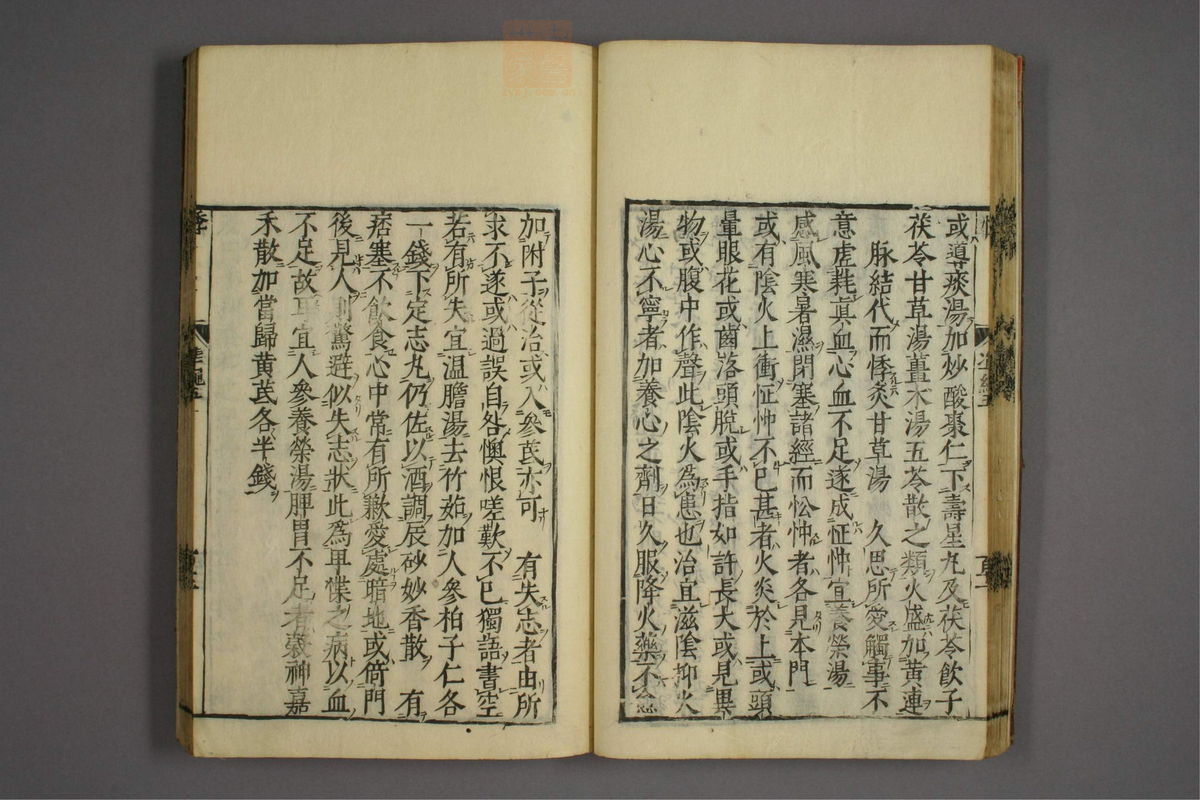 或導痰湯加炒酸棗仁下壽星丸及茯苓飲子
茯苓甘草湯薑朮湯五苓散之類火盛加黄連
脉結代而悸炙甘草湯　久思所愛觸事不
意虚耗眞血心血不足遂成怔忡宜養榮湯
感風寒暑濕閉塞諸經而忪忡者各見本門
或有陰火上衝怔忡不已甚者火炎於上或頭
暈眼花或齒落頭脱或手指如許長大或見異
物或腹中作聲此陰火爲患也治宜滋陰抑火
湯心不寧者加養心之劑日久服降火藥不愈
加附子從治或入參芪亦可　有失志者由所
求不遂或過誤自咎懊恨嗟歎不已獨語書空
若有所失宜温膽湯去竹茹加人參柏子仁各
一錢下定志丸仍佐以酒調辰砂妙香散　有
痞塞不飲食心中常有所歉愛處暗地或倚門
後見人則驚避似失志狀此爲卑惵之病以血
不足故耳宜人參養榮湯脾胃不足者穀神嘉
禾散加當歸黄芪各半錢